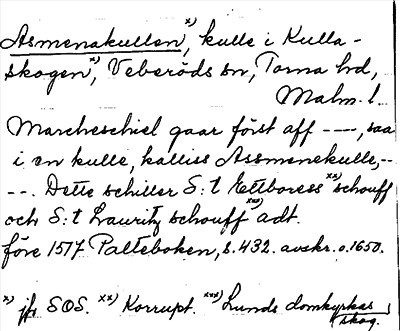 Asmenakullen x), kulle i Kulla-
skogen x), Veberöds sn, Torna hd,
Malm. l.
Marcheschiel gaar först aff ----, saa
i en kulle, kalliss Assmenekulle, -
--. Dette schiller S:t Ettboress xx) schouff
och S:t Lauritz schouff xxx) adt.
före 1517 Palteboken, s. 432. avskr. o. 1650.
x) jfr SOS. xx) Korrupt. xxx) Lunds domkyrkas
skog.